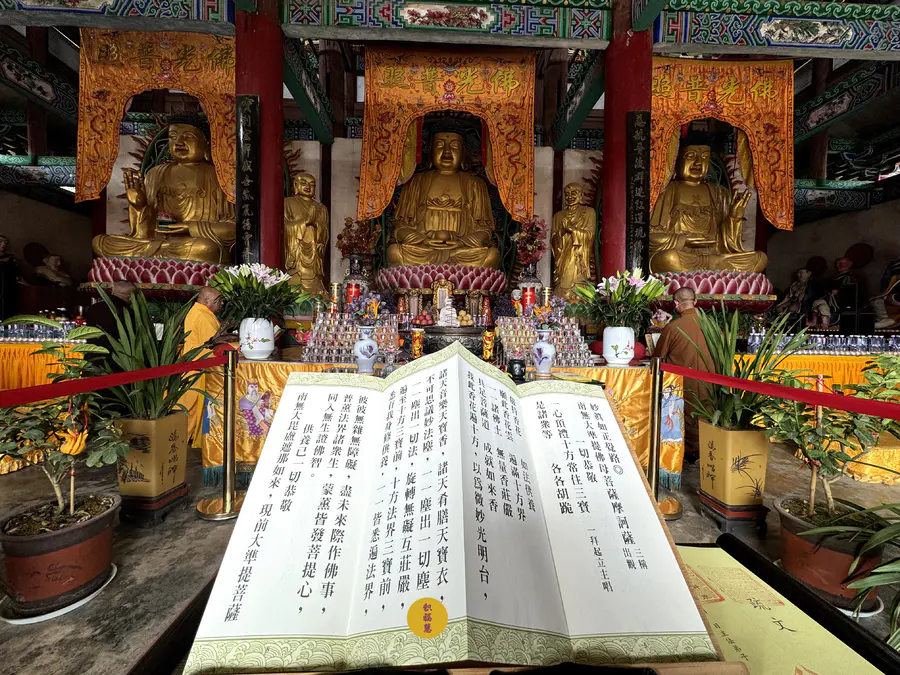 佛光普照
佛光普照
佛光普照
菩薩摩訶薩 三稱
一切恭敬
一心頂禮十方常住三寶 一拜起立主唱
是諸眾等 各各胡跪
如法供養
願此香花雲 遍滿十方界
一一諸佛土 無量香莊嚴
具足菩薩道 成就如來香
我此香花遍十方，以為微妙光明台，
諸天音樂天寶香，諸天肴膳天寶衣，
不可思議妙法塵，一一塵出一切塵，
一一塵出一切法 旋轉無礙互莊嚴，
遍至十方三寶前，十方法界三寶前，
悉有我身修供養 皆來遍法界，
彼彼無雜無障礙，盡未來際作佛事，
普薰法界諸眾生，蒙薰皆發菩提心，
同入無生證佛智。
供養已一切恭敬
南無大毘盧遮那如來，現前大準提菩薩
積福慧
疏文